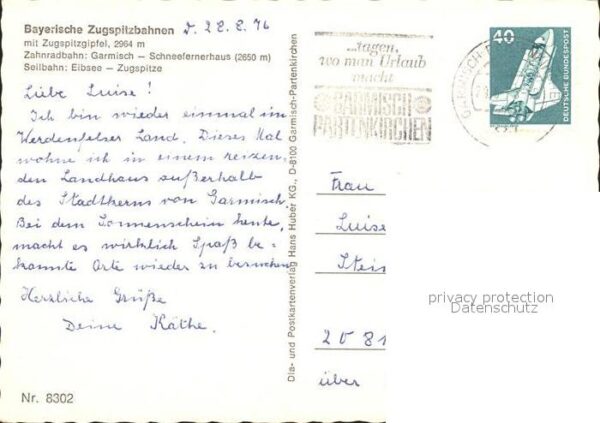 Bayerische Zugspitzbahnen
mit Zugspitzgipfel, 2964 m
Zahnradbahn: Garmisch – Schneefernerhaus (2650 m)
Seilbahn: Eibsee – Zugspitze
d. 28.8.76
Liebe Luise!
Ich bin wieder einmal im
Werdenfelser Land. Dieses Mal
wohne ich in einem reizen-
den Landhaus außerhalb
des Stadtkerns von Garmisch.
Bei dem Sonnenschein heute,
macht es wirklich Spaß be-
kannte Orte wieder zu besuchen
Herzliche Grüße
Deine Käthe.
Nr. 8302
Dia- und Postkartenverlag Hans Huber KG., D-8100 Garmisch-Partenkirchen
...tagen,
wo man Urlaub
macht
GARMISCH
PARTENKIRCHEN
GARMISCH-P
40
DEUTSCHE BUNDESPOST
Frau
Luise
Stei
2081
über
privacy protection
Datenschutz